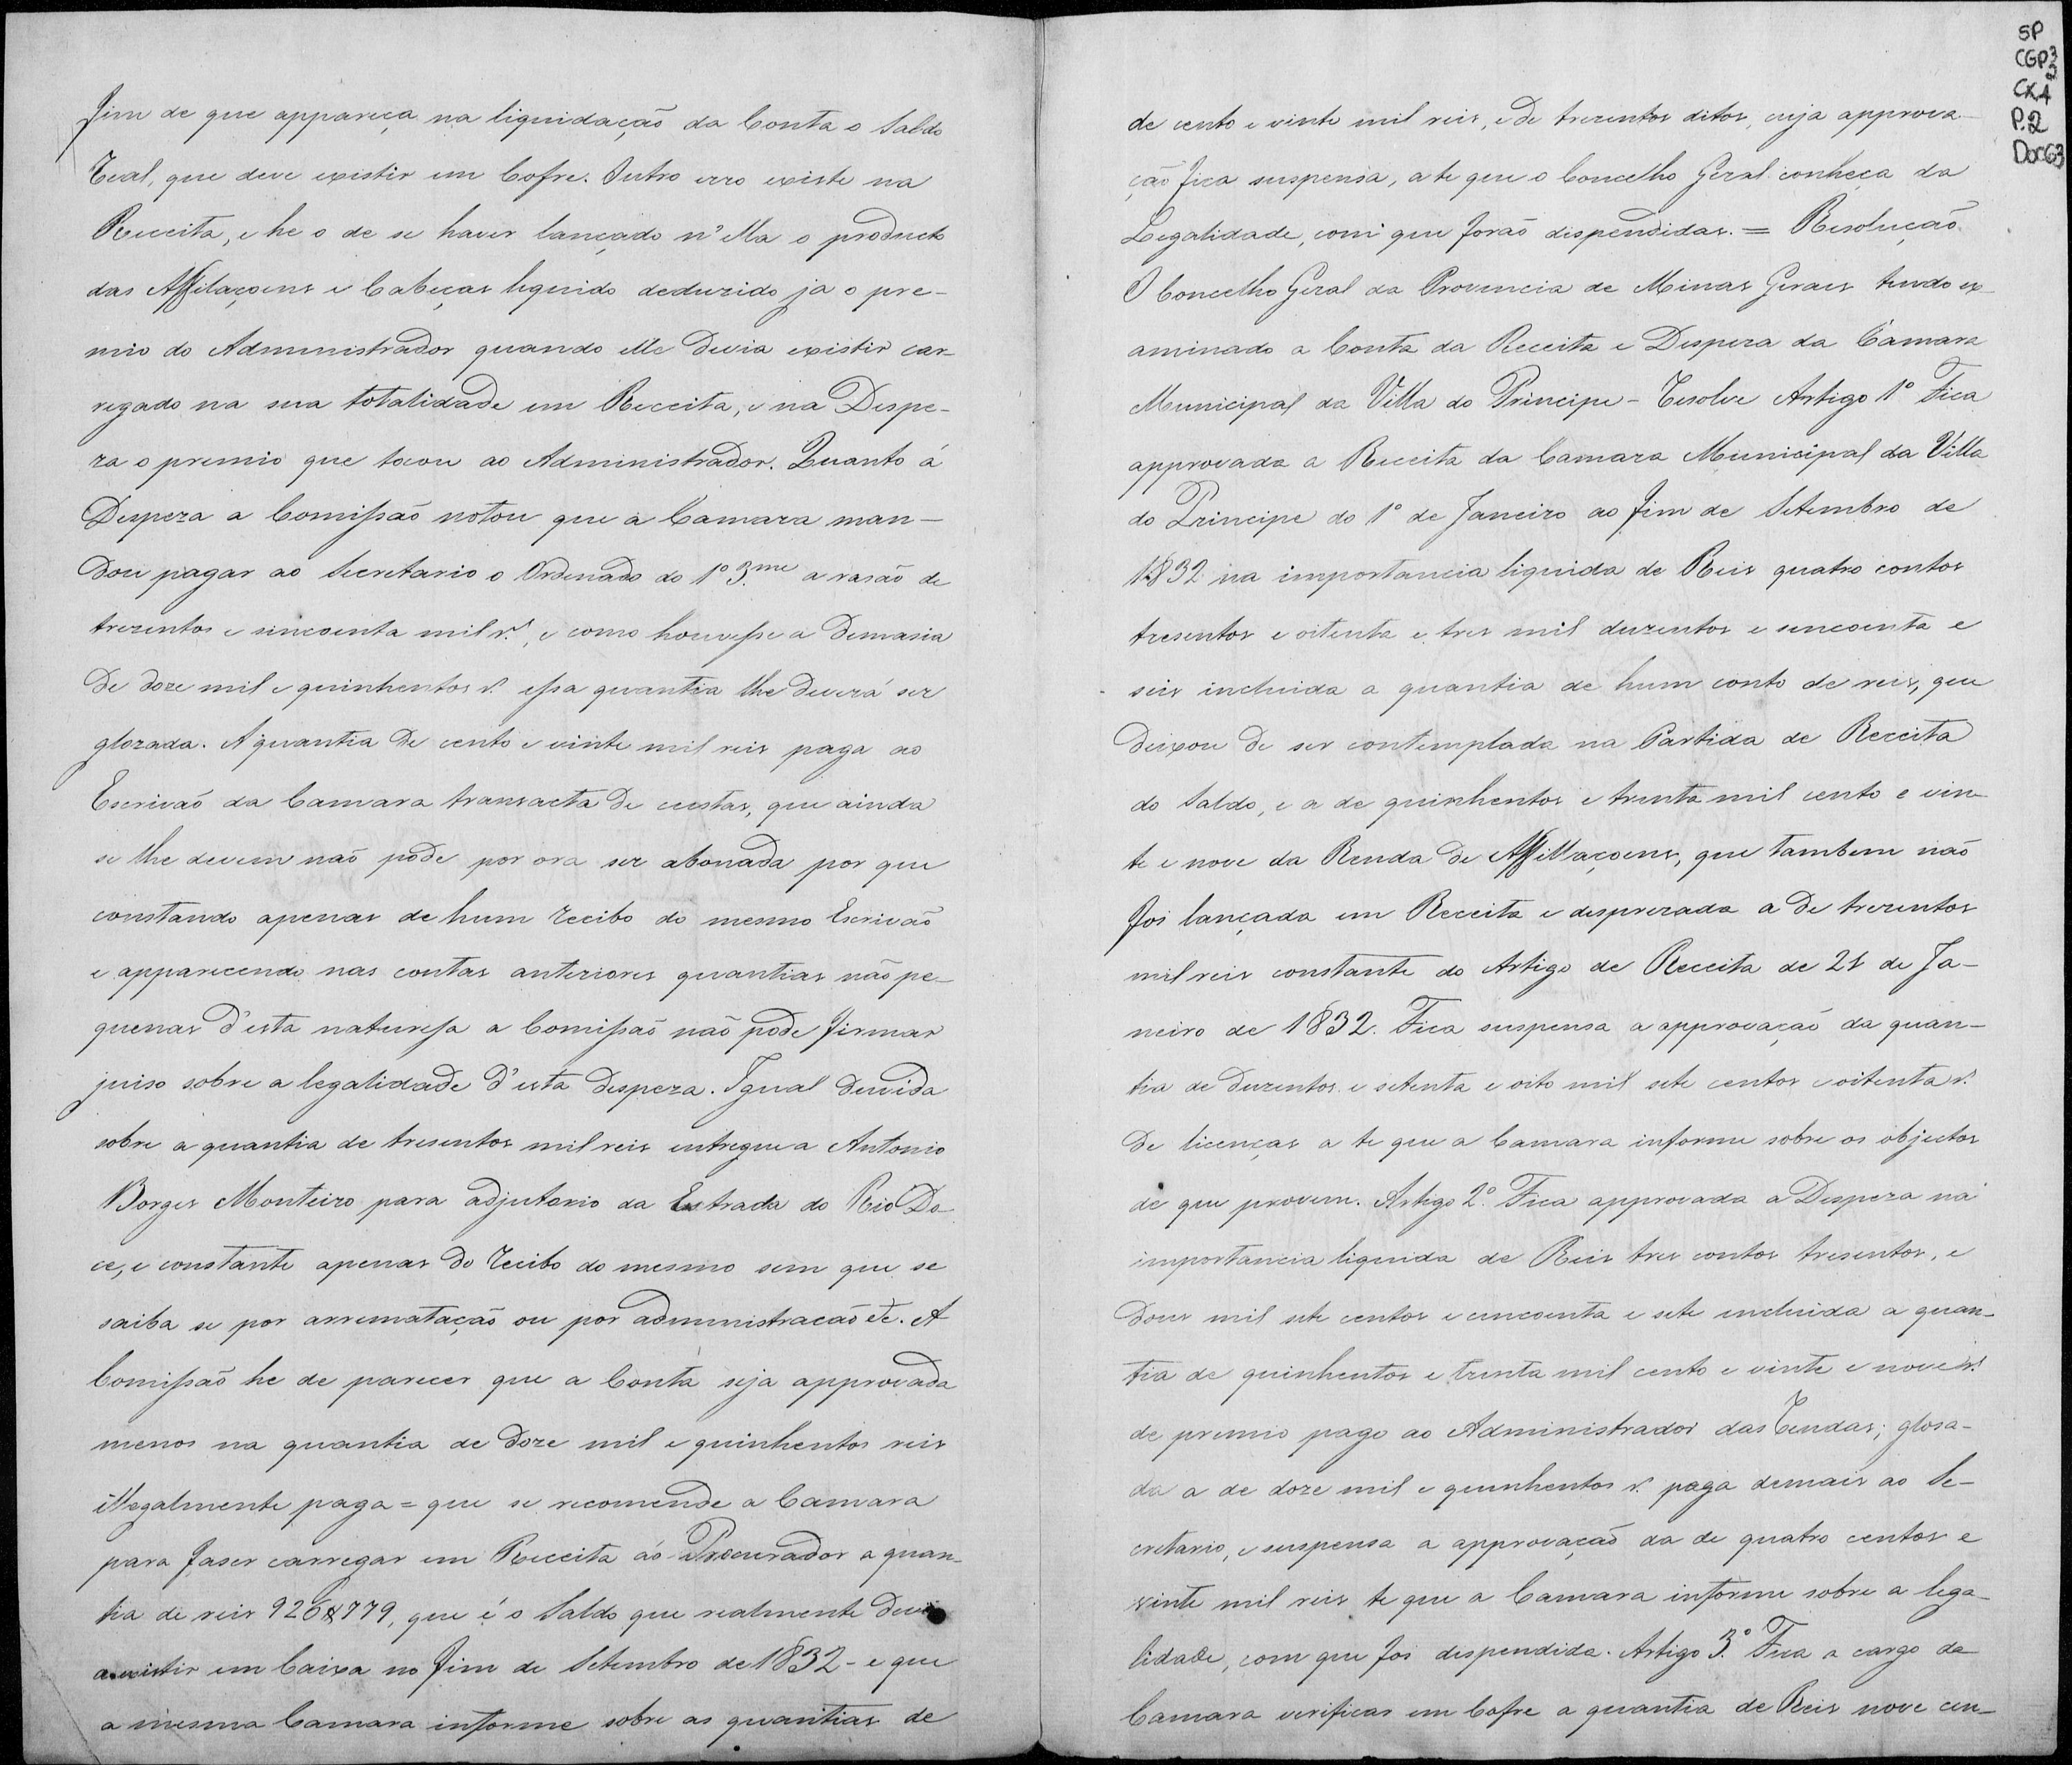 fim de que appareça na liquidação da Conta o Saldo
Real, que deve existir em Cofre. Outro erro existe na
Receita, e he o de se haver lançado n'ella o producto
das Affilaçoens e Cabeças liquido deduzido ja o pre-
mio do Administrador quando elle devia existir car-
regado na sua totalidade em Receita, e na Despe-
za o premio que tocou ao Administrador. Quanto á
Despeza a Comissão notou que a Camara man-
dou pagar ao Secretario o Ordenado do 1º 3.me a rasão de
trezentos e sincoenta mil r.s, e como houvesse a demasia
de doze mil e quinhentos r.s essa quantia lhe deverá ser
glozada. A quantia de cento e vinte mil reis paga ao
Escrivão da Camara transacta de custas, que ainda
se lhe devem não pode por ora ser abonada por que
constando apenas de hum recibo do mesmo Escrivão
e apparecendo nas contas anteriores quantias não pe-
quenas d'esta naturesa a Comissão não pode firmar
juiso sobre a legalidade d'esta despeza. Igual duvida
sobre a quantia de tresentos mil reis entregue a Antonio
Borges Monteiro para adjutorio da Estrada do Rio Do-
ce, e constante apenas do recibo do mesmo sem que se
saiba se por arrematação ou por administracão etc. A
Comissão he de parecer que a Conta seja approvada
menos na quantia de doze mil e quinhentos reis
illegalmente paga = que se recomende a Camara
para faser carregar em Receita ao Procurador a quan-
tia de reis 926$779, que é o Saldo que realmente devia
existir em Caixa no fim de Setembro de 1832 - e que
a mesma Camara informe sobre as quantias de
SP
CGP3
CX,1
P.2
Doc63
de cento e vinte mil reis, e de trezentos ditos, cuja approva-
ção fica suspensa, a te que o Concelho Geral conheça da
Legalidade, com que forão despendidas. = Resolução
O Concelho Geral da Provincia de Minas Geraes tendo ex-
aminado a Conta da Receita e Despeza da Camara
Municipal da Villa do Principe - Resolve Artigo 1º Fica
approvada a Receita da Camara Municipal da Villa
do Principe do 1º de Janeiro ao fim de Setembro de
1832 na importancia liquida de Reis quatro contos
tresentos e oitenta e tres mil duzentos e sencoenta e
seis incluida a quantia de hum conto de reis, que
deixou de ser contemplada na Partida de Receita
do Saldo, e a de quinhentos e trinta mil cento e vin-
te e nove da Renda de Affillaçoens, que tambem não
foi lançada em Receita e desprezada a de trezentos
mil reis constante do Artigo de Receita de 21 de Ja-
neiro de 1832. Fica suspensa a approvação da quan-
tia de duzentos e setenta e oito mil sete centos e oitenta r.s
de licenças a te que a Camara informe sobre os objectos
de que provem. Artigo 2º. Fica approvada a Despeza na
importancia liquida de Reis tres contos tresentos, e
dous mil sete centos e cincoenta e sete incluida a quan-
tia de quinhentos e trinta mil cento e vinte e nove r.s
de premio pago ao Administrador das Rendas; glosa-
da a de doze mil e quinhentos r.s paga demais ao Se-
cretario, e suspensa a approvação da de quatro centos e
vinte mil reis te que a Camara informe sobre a lega-
lidade, com que foi despendida. Artigo 3º. Fica a cargo da
Camara verificar em Cofre a quantia de Reis nove cen-